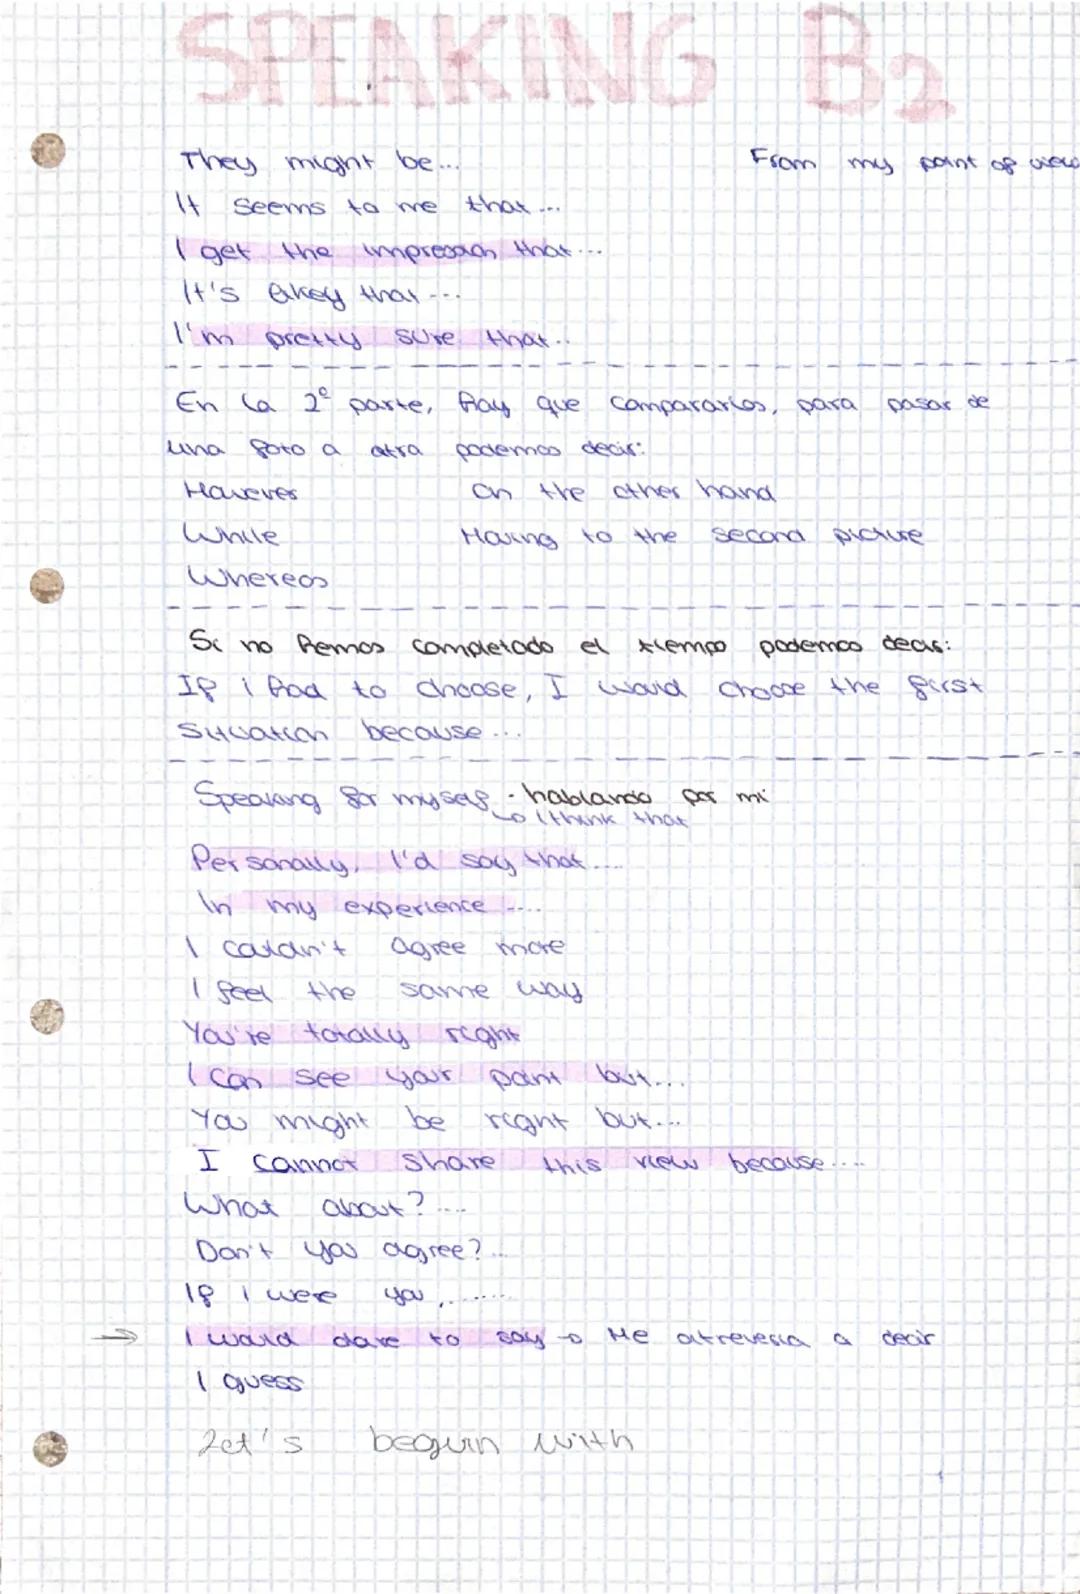 SPEAKING B2
They might be...
From my point of view
It seems to me that...
I get the impression that...
It's okey that...
I'm pretty sure that..
En la 2º parte, hay que compararlos, para pasar de
una foto a otra podemos decir:
However
On the other hand
While
Moving to the second picture
Whereas
Si no hemos completado el tiempo podemos decir:
If i had to choose, I would choose the first
situation because...
Speaking for myself - hablando por mi
→ I think that
Personally, I'd say that....
In my experience ....
I couldn't agree more
I feel the same way
You're totally right
I can see your point but...
You might be right but....
I cannot share this view because....
What about?....
Don't you agree?...
If i were you,.......
→ I would dare to say → Me atrevería a decir
I guess
Let's beguin with